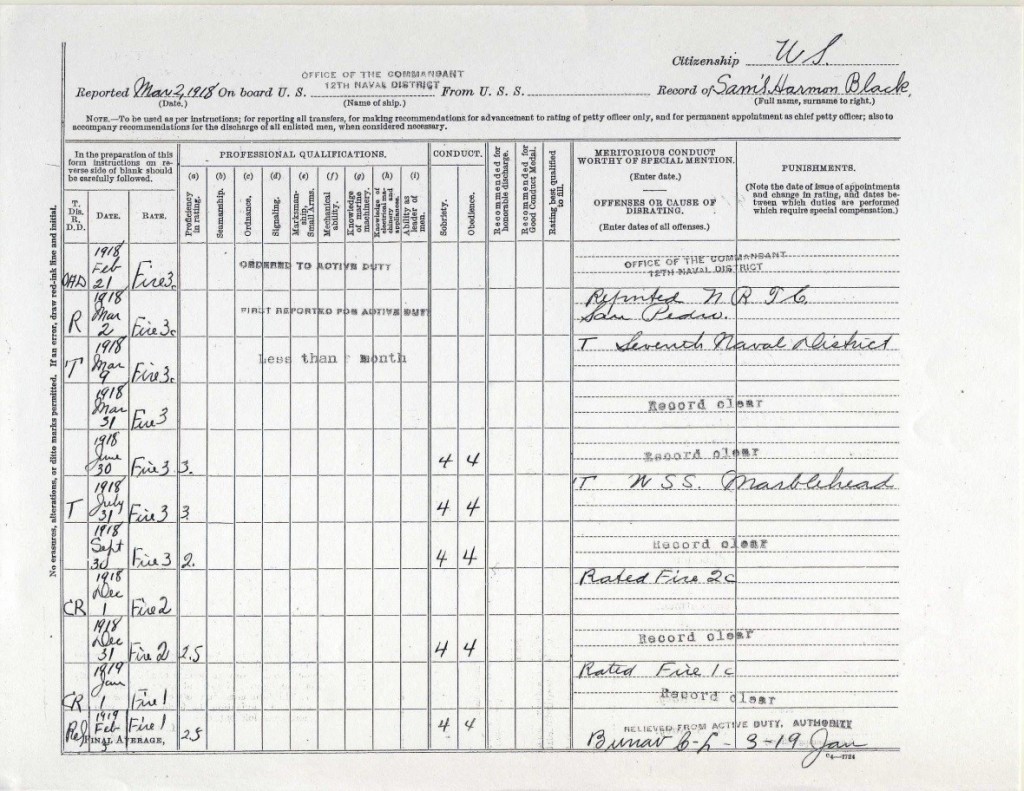 Citizenship U S.
OFFICE OF THE COMMANDANT
12TH NAVAL DISTRICT
Reported Mar 2, 1918 On board U. S. From U. S. S. Record of Sam'l Harmon Black,
(Date.) (Name of ship.) (Full name, surname to right.)
NOTE.—To be used as per instructions; for reporting all transfers, for making recommendations for advancement to rating of petty officer only, and for permanent appointment as chief petty officer; also to
accompany recommendations for the discharge of all enlisted men, when considered necessary.
No erasures, alterations, or ditto marks permitted. If an error, draw red-ink line and initial.
In the preparation of this
form instructions on re-
verse side of blank should
be carefully followed.
T.
Dis.
R.
D.D.
DATE.
RATE.
PROFESSIONAL QUALIFICATIONS.
(a) Proficiency in rating.
(b) Seamanship.
(c) Ordnance.
(d) Signaling.
(e) Marksmanship, Small Arms.
(f) Mechanical ability.
(g) Knowledge of marine machinery.
(h) Knowledge of electrical machinery and appliances.
(i) Ability as leader of men.
CONDUCT.
Sobriety.
Obedience.
Recommended for honorable discharge.
Recommended for Good Conduct Medal.
Rating best qualified to fill.
MERITORIOUS CONDUCT
WORTHY OF SPECIAL MENTION.
(Enter date.)
OFFENSES OR CAUSE OF
DISRATING.
(Enter dates of all offenses.)
PUNISHMENTS.
(Note the date of issue of appointments
and change in rating, and dates be-
tween which duties are performed
which require special compensation.)
1918
Feb
21 Fire3c ORDERED TO ACTIVE DUTY
OFFICE OF THE COMMANDANT
12TH NAVAL DISTRICT
1918
Mar
R 2 Fire 3c FIRST REPORTED FOR ACTIVE DUTY
Reported N R T C
San Pedro.
1918
Mar
T 9 Fire 3c Less than month
T Seventh Naval District
1918
Mar
31 Fire3 Record clear
1918
June
30 Fire 3 3. 4 4 Record clear
1918
July
T 31 Fire 3 3 4 4
T U S S. Marblehead
1918
Sept
30 Fire 3 2. 4 4 Record clear
1918
Dec
CR 1 Fire2
Rated Fire 2c
1918
Dec
31 Fire 2 2.5 4 4 Record clear
1919
Jan
CR 1 Fire1
Rated Fire 1c
Record clear
1919
Feb Fire 1 2.5 4 4
FINAL AVERAGE,
RELIEVED FROM ACTIVE DUTY. AUTHORITY
Bunav 3-19 Jan